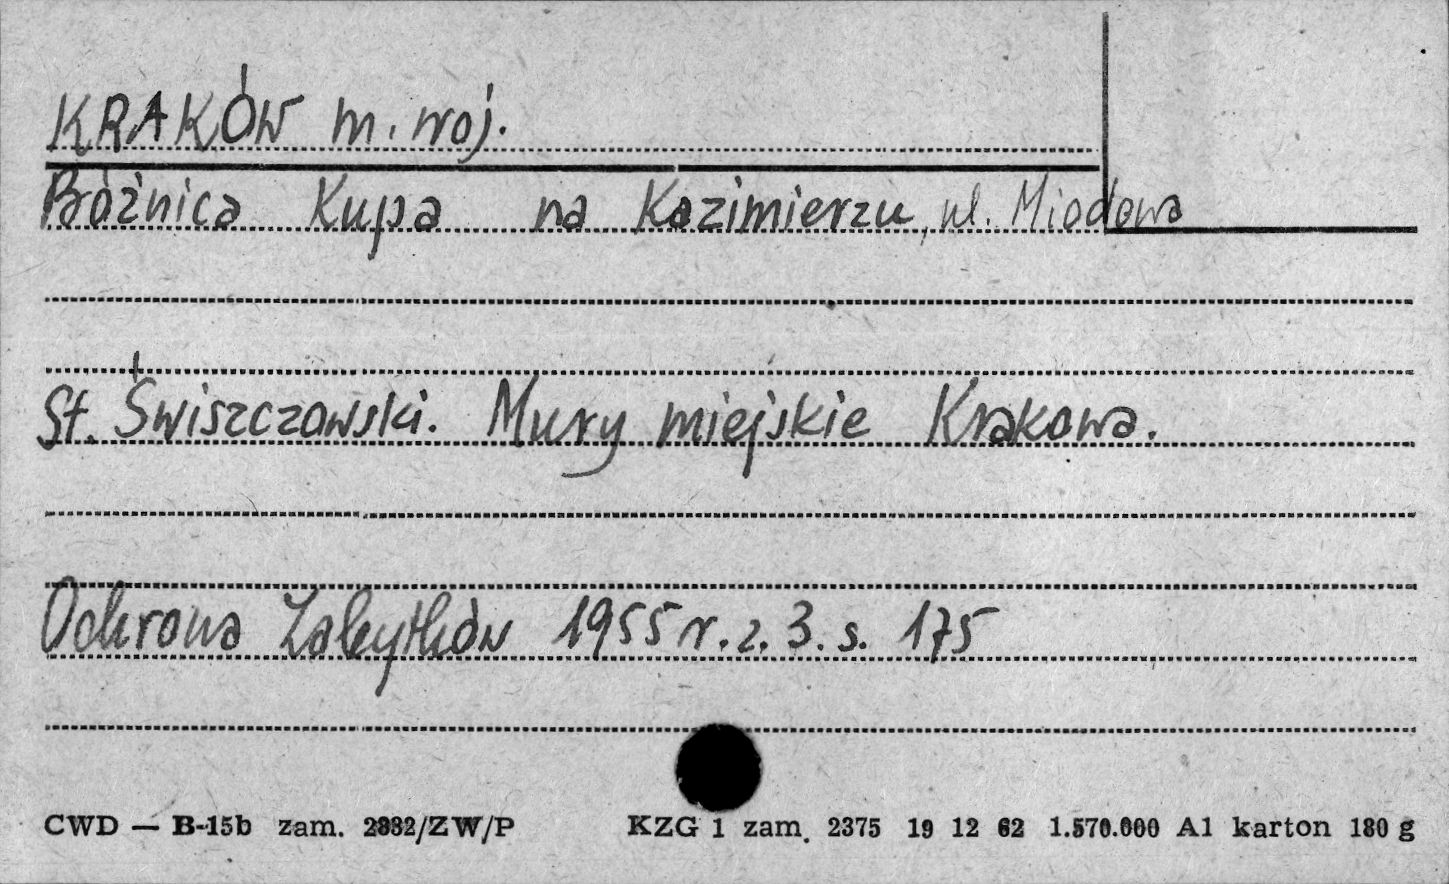 KRAKÓW m. woj.
Bóżnica Kupa na Kazimierzu, ul. Miodowa
St. Świszczowski. Mury miejskie Krakowa.
Ochrona Zabytków 1955 r. z. 3. s. 175
CWD — B-15b zam. 2832/ZW/P KZG 1 zam. 2375 19 12 62 1.570.000 A1 karton 180 g